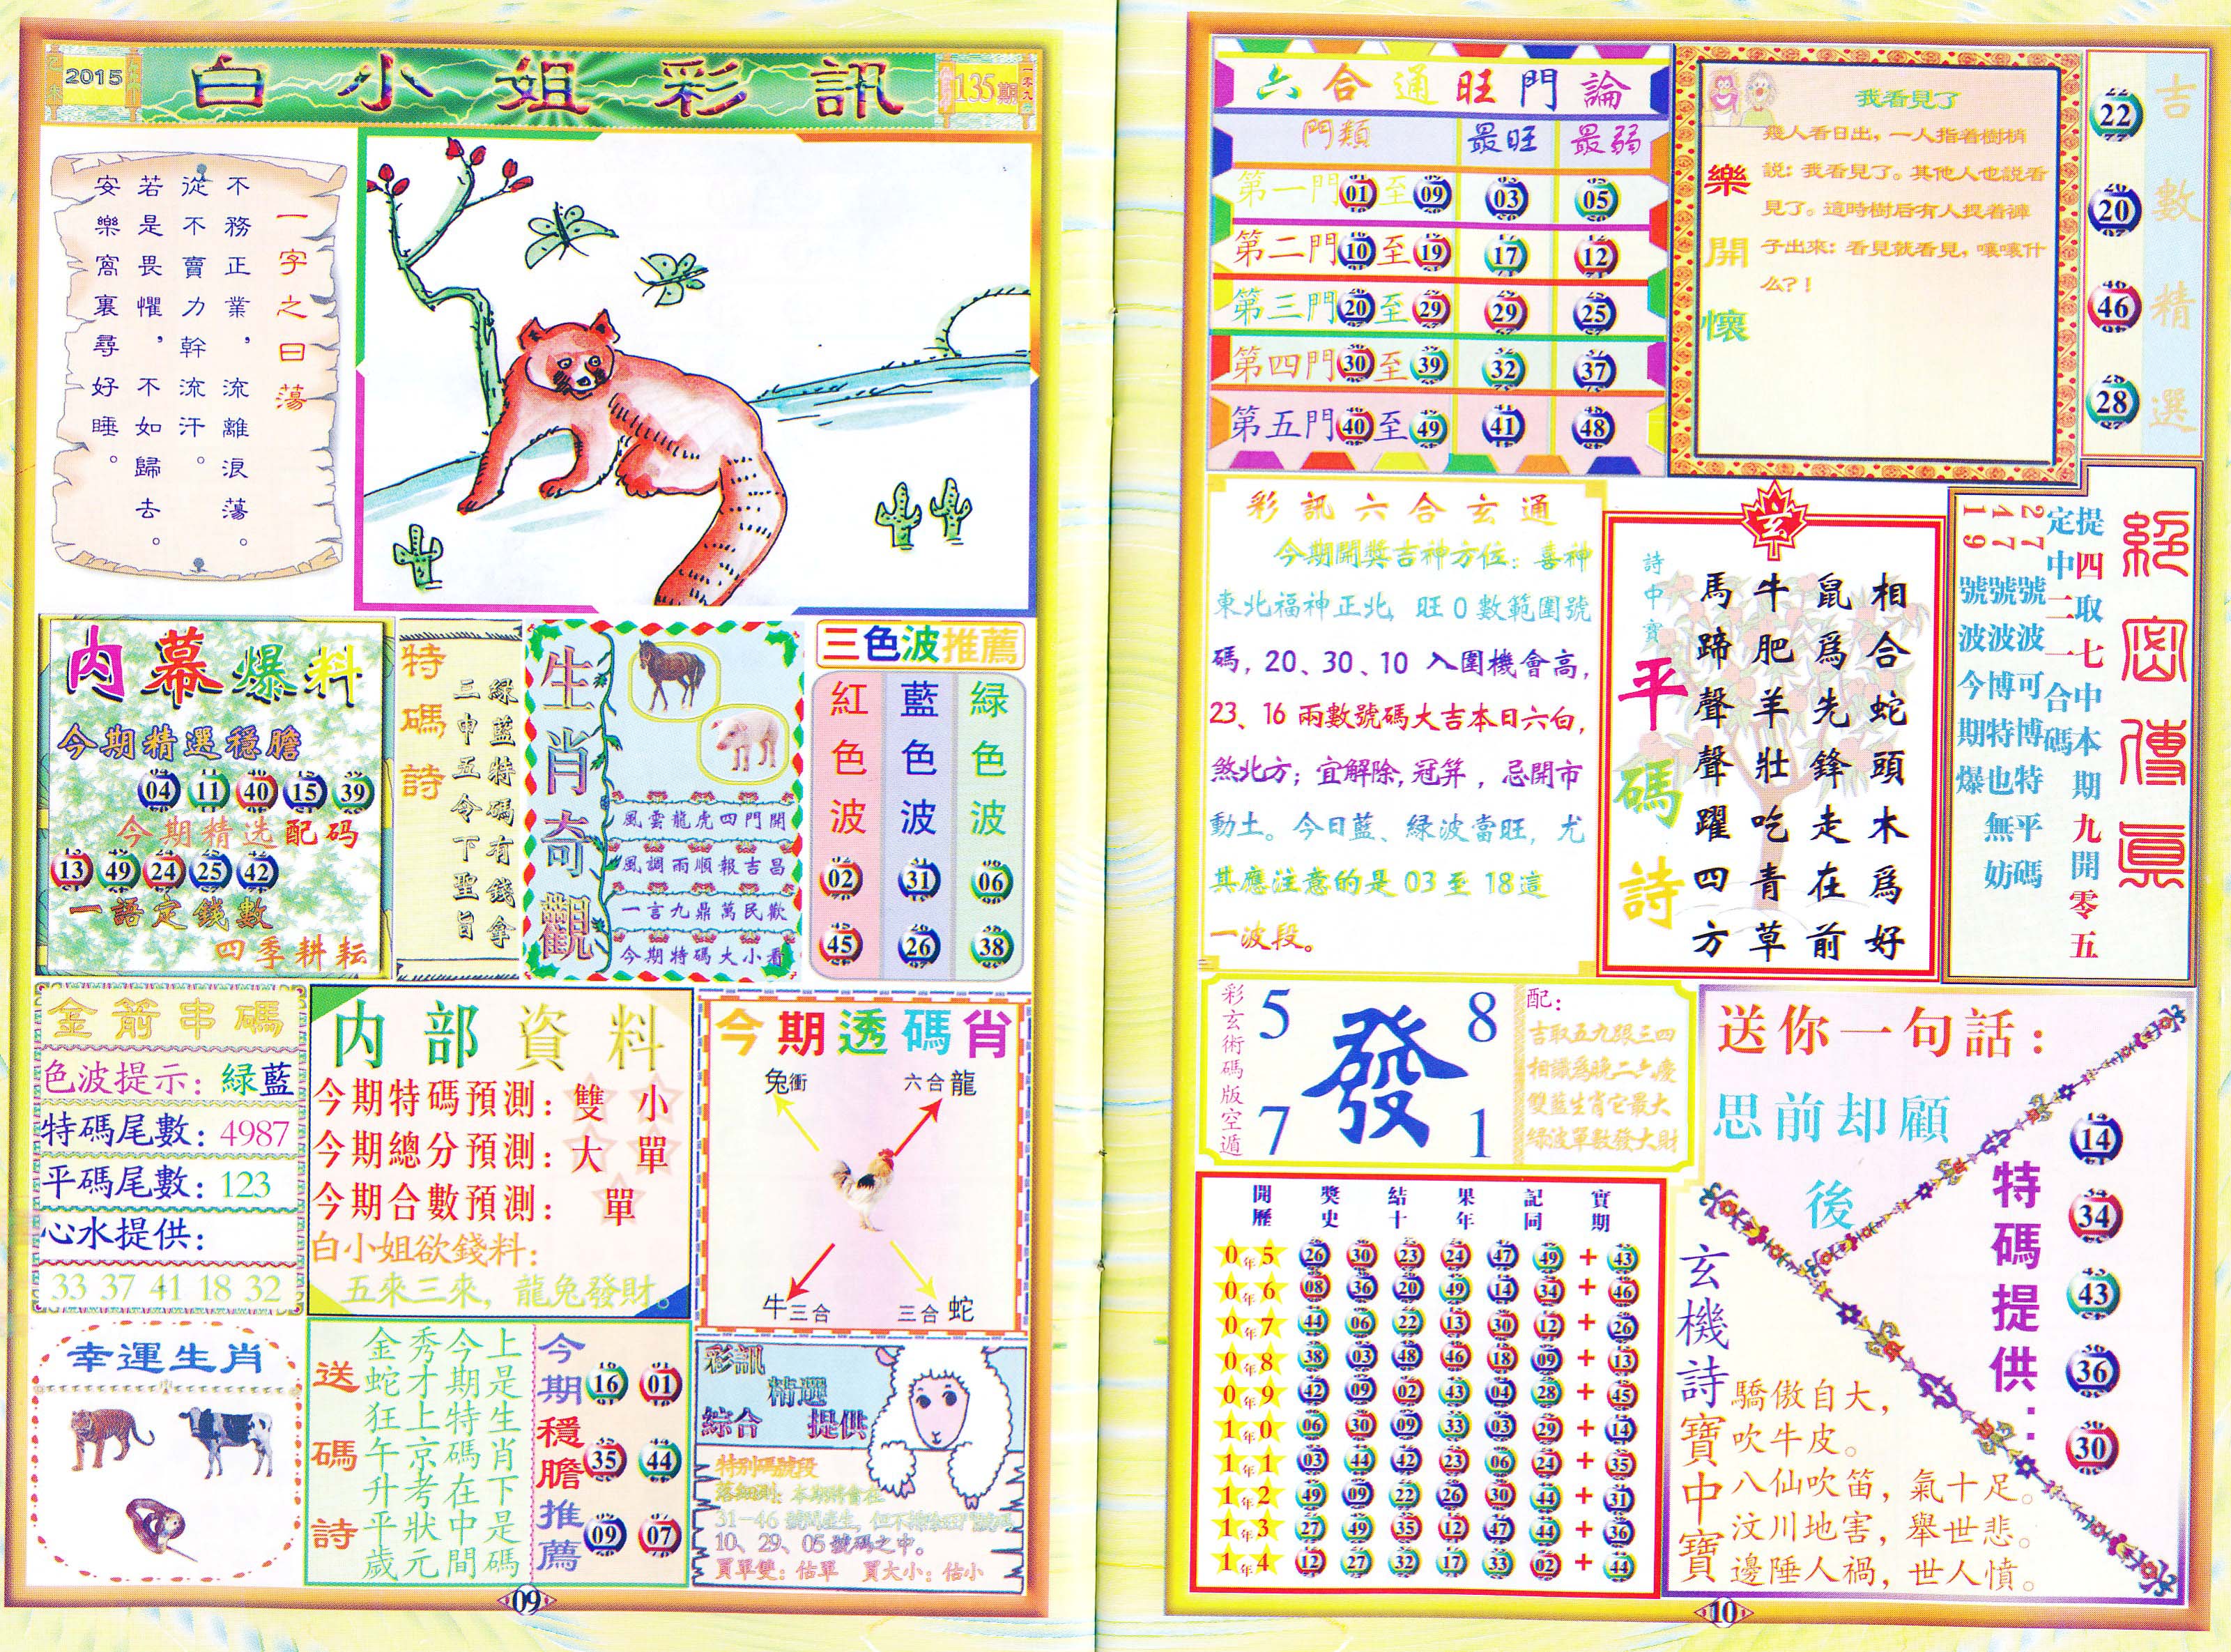 2015
白小姐彩訊
135期
一字之曰蕩
不務正業，流離浪蕩。
從不賣力幹流汗。
若是畏懼，不如歸去。
安樂窩裏尋好睡。
内幕爆料
今期精選穩膽
04 11 40 15 39
今期精选配码
13 49 24 25 42
一語定錢數
四季耕耘
特碼詩
綠藍特碼有錢拿
三申五令下聖旨
生肖奇觀
風雲龍虎四門開
風調雨順報吉昌
一言九鼎萬民歡
今期特碼大小看
三色波推薦
紅色波 藍色波 緑色波
02 31 06
45 26 38
金箭串碼
色波提示：緑藍
特碼尾數：4987
平碼尾數：123
心水提供：
33 37 41 18 32
内部資料
今期特碼預測：雙 小
今期總分預測：大 單
今期合數預測： 單
白小姐欲錢料：
五來三來，龍兔發財。
今期透碼肖
兔衝 六合龍
牛三合 三合蛇
幸運生肖
送碼詩
上是生肖下是碼
今期特碼在中間
秀才上京考狀元
金蛇狂午升平歲
今期穩膽推薦
16 01
35 44
09 07
彩訊
精選
綜合 提供
特别碼號段
10、29、05號碼之中。
買單雙：估單 買大小：估小
09
六合通旺門論
門類 最旺 最弱
第一門01至09 03 05
第二門10至19 17 12
第三門20至29 29 25
第四門30至39 32 37
第五門40至49 41 48
樂開懷
我看見了
幾人看日出，一人指着樹梢
説：我看見了。其他人也説看
見了。這時樹后有人提着褲
子出來：看見就看見，嚷嚷什
么？！
吉數精選
22
20
46
28
彩訊六合玄通
今期開獎吉神方位：喜神
東北福神正北，旺0數範圍號
碼，20、30、10 入圍機會高，
23、16 兩數號碼大吉本日六白，
煞北方；宜解除，冠笄，忌開市
動土。今日藍、緑波當旺，尤
其應注意的是 03 至 18這
一波段。
玄
詩中寶
平碼詩
相合蛇頭木爲好
鼠爲先鋒走在前
牛肥羊壯吃青草
馬蹄聲聲躍四方
絕密傳真
提四取七中本期九開零五
定中二一合碼
27號波可博特平碼
47號波博特也無妨
19號波今期爆
彩玄術碼版空遁
5 8
發
7 1
配：
吉取五九跟三四
相識爲晚二六慶
雙藍生肖它最大
緑波單數發大財
開獎結果記實
歷史十年同期
05年 26 30 23 24 47 49 + 43
06年 08 36 20 49 14 34 + 46
07年 44 06 22 13 30 12 + 26
08年 38 03 48 46 18 09 + 13
09年 42 09 02 43 04 28 + 45
10年 06 30 09 33 03 29 + 14
11年 03 44 42 23 06 24 + 35
12年 49 09 22 26 30 44 + 31
13年 27 49 35 12 47 44 + 36
14年 12 27 32 17 33 02 + 44
送你一句話：
思前却顧
後
特碼提供：
14
34
43
36
30
玄機詩寶中寶
驕傲自大，
吹牛皮。
八仙吹笛，氣十足。
汶川地害，舉世悲。
邊陲人禍，世人憤。
10